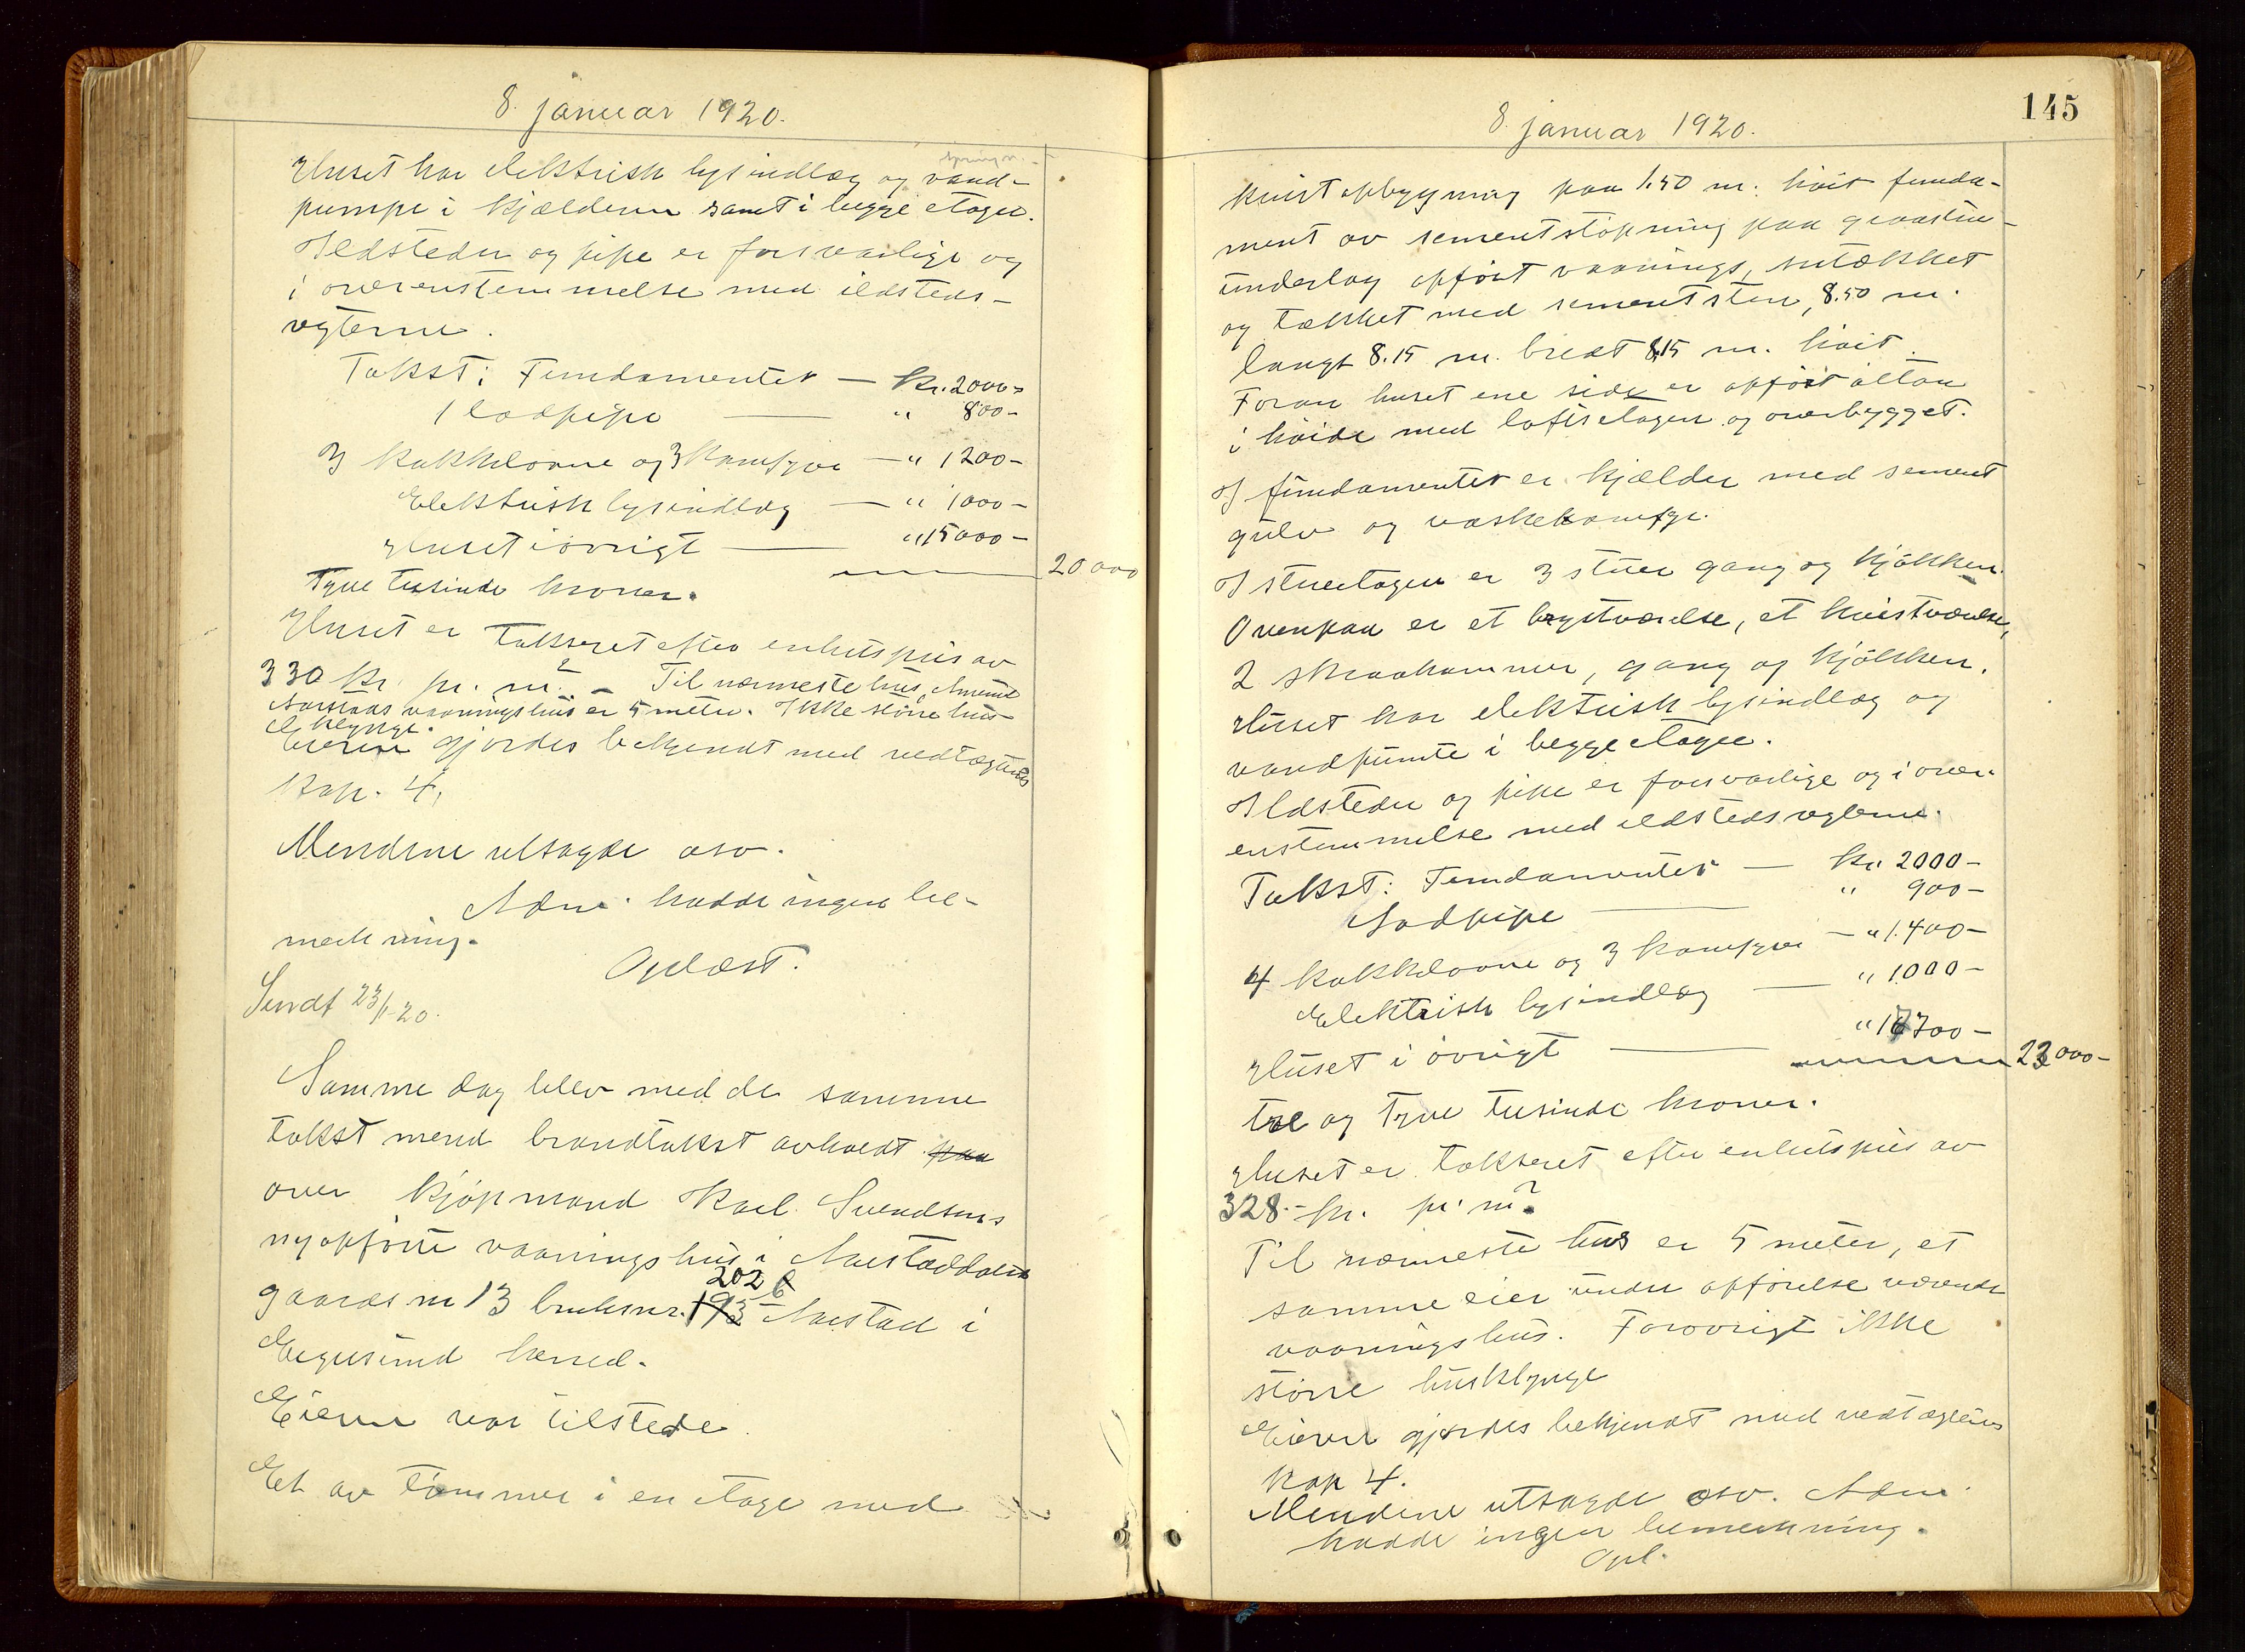 8. januar 1920.
Huset har elektrisk lysindlæg og vand-
pumpe i kjælderen samt i begge etager.
Ildsteder og pipe er forsvarlige og
i overenstemmelse med ildsteds-
reglerne.
Takst: Fundamentet — Kr. 2000-
1 lodpipe — " 800-
3 kakkelovne og 3 komfyrer — " 1200-
Elektrisk lysindlæg — " 1000-
Huset iøvrigt — " 15000-
20000
Tyve tusinde kroner.
Huset er takseret efter enhetspris av
330 kr. pr. m². - Til nærmeste hus,
Aarstads vaaningshus er 5 meter. Ikke større hus-
klynge.
Eieren gjordes bekjendt med vedtægternes
Kap. 4.
Mendene utsagde osv.
Adm. hadde ingen be-
merkning.
Oplæst.
Sendt 23/1 20.
Samme dag blev med de samme
takstmend brandtakst avholdt paa
over kjøpmand Karl Svendsens
nyopførte vaaningshus i Aarstaddalen
202 6
gaards nr 13 bruksnr. 193 Aarstad i
Egersund herred.
Eieren var tilstede.
Et av tømmer i en etage med
145
8. januar 1920.
kvistopbygning paa 1.50 m. høit funda-
ment av sementstøpning paa graasten-
underlag opført vaaningshus, sutækket
og tækket med sementsten, 8.50 m.
langt 8.15 m. bredt 8,15 m. høit.
Foran huset ene side er opført altan
i høide med loftsetagen og overbygget.
I fundamentet er kjælder med sement
gulv og vaskekomfyr.
I stueetagen er 3 stuer gang og kjøkken.
Ovenpaa er et brystværelse, et kvistværelse,
2 skraakammer, gang og kjøkken.
Huset har elektrisk lysindlæg og
vandpumpe i begge etager.
Ildsteder og pipe er forsvarlige og i over-
enstemmelse med ildstedsreglerne.
Takst: Fundamentet — Kr. 2000-
Lodpipe — " 900-
4 kakkelovne og 3 komfyrer — " 1.400-
Elektrisk lysindlæg — " 1000-
Huset i øvrigt — " 17700-
23000-
tre og tyve tusinde kroner.
Huset er takseret efter enhetspris av
328.- kr. pr. m².
Til nærmeste hus er 5 meter, et
samme eier under opførelse værende
vaaningshus. Forøvrigt ikke
større husklynge
Eieren gjordes bekjendt med vedtægternes
Kap 4.
Mendene utsagde osv. Adm.
hadde ingen bemerkning.
Opl.